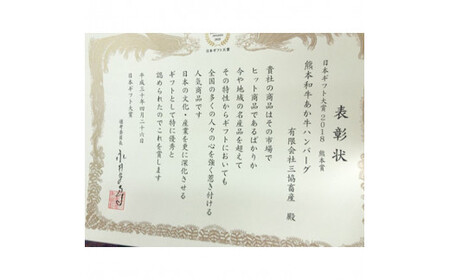 日本ギフト大賞
表彰状
日本ギフト大賞2018 熊本賞
熊本和牛あか牛ハンバーグ
有限会社三協畜産 殿
貴社の商品はその市場で
ヒット商品であるばかりか
今や地域の名産品を超えて
その特性からギフトにおいても
全国の多くの人々の心を強く惹き付ける
人気商品です
日本の文化・産業を更に深化させる
ギフトとして特に優秀と
認められたのでこれを賞します
平成三十年四月二十六日
日本ギフト大賞